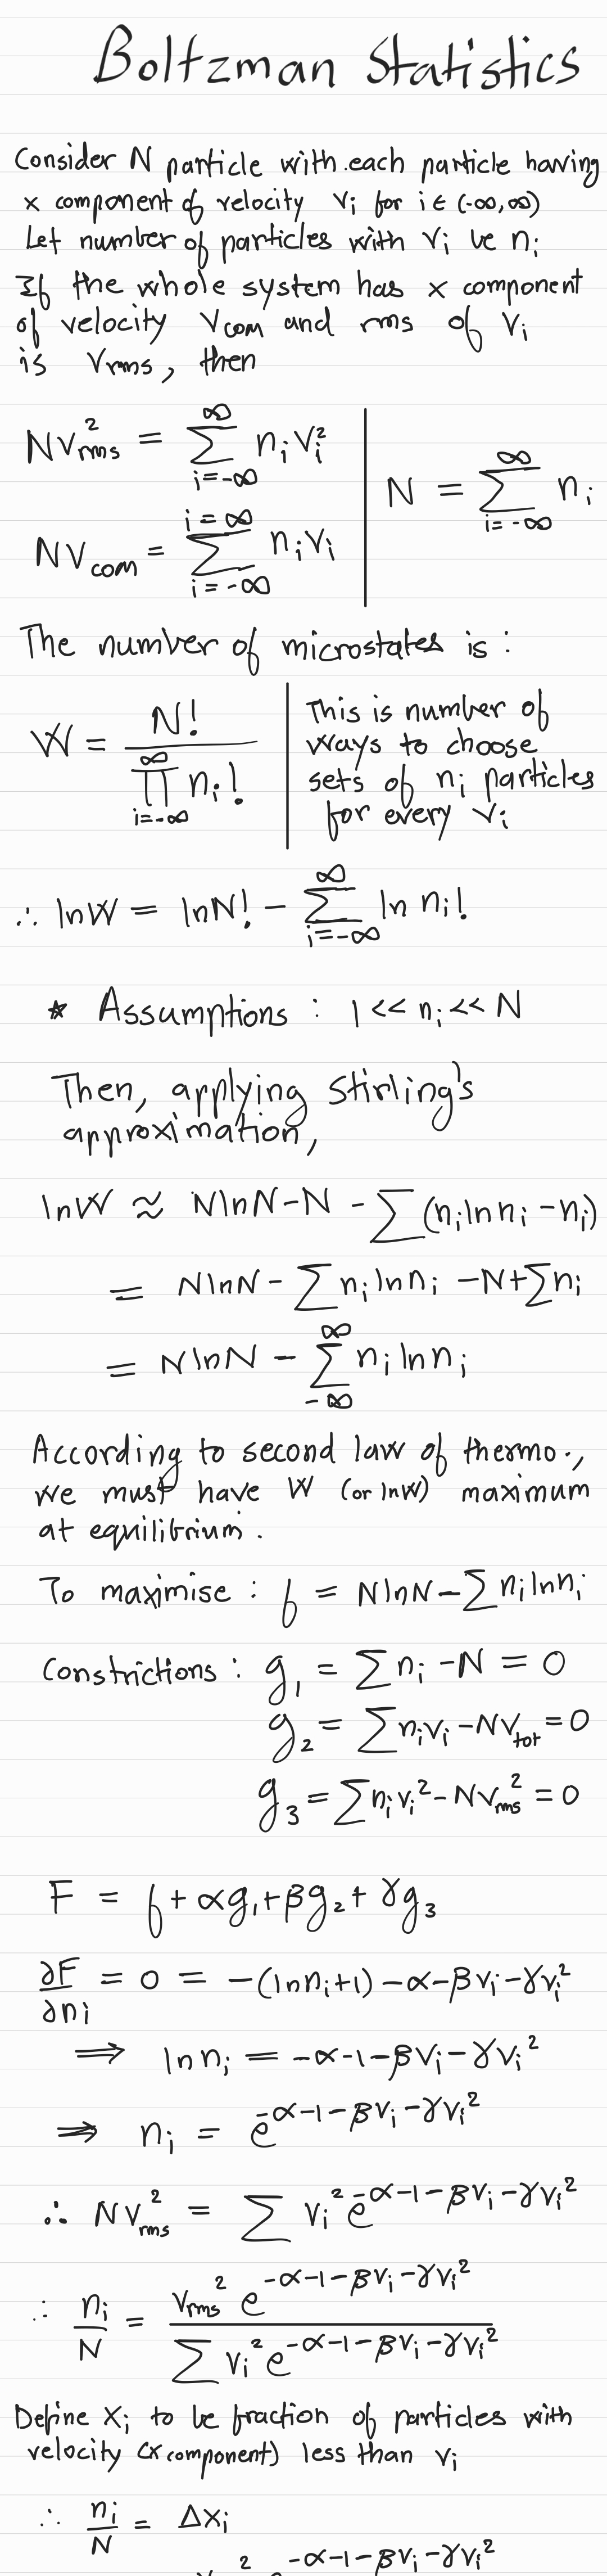 Boltzman Statistics
Consider N particle with each particle having
x component of velocity vᵢ for i ∈ (-∞,∞)
Let number of particles with vᵢ be nᵢ
If the whole system has x component
of velocity V_com and rms of vᵢ
is V_rms, then
N v_rms² = ∑_{i=-∞}^{∞} nᵢ vᵢ²
N v_com = ∑_{i=-∞}^{i=∞} nᵢ vᵢ
N = ∑_{i=-∞}^{∞} nᵢ
The number of microstates is :
W = N! / ∏_{i=-∞}^{∞} nᵢ!
This is number of
ways to choose
sets of nᵢ particles
for every vᵢ
∴ lnW = lnN! - ∑_{i=-∞}^{∞} ln nᵢ!
* Assumptions : 1 << nᵢ << N
Then, applying Stirling's
approximation,
lnW ≈ NlnN-N - ∑(nᵢ ln nᵢ - nᵢ)
= NlnN - ∑ nᵢ ln nᵢ -N+∑nᵢ
= NlnN - ∑_{-∞}^{∞} nᵢ ln nᵢ
According to second law of thermo.,
we must have W (or lnW) maximum
at equilibrium.
To maximise : f = NlnN - ∑ nᵢ ln nᵢ
Constrictions : g₁ = ∑ nᵢ - N = 0
g₂ = ∑ nᵢvᵢ - Nv_tot = 0
g₃ = ∑ nᵢvᵢ² - Nv_rms² = 0
F = f + αg₁ + βg₂ + γg₃
∂F/∂nᵢ = 0 = -(ln nᵢ+1) -α-βvᵢ-γvᵢ²
⟹ ln nᵢ = -α-1-βvᵢ-γvᵢ²
⟹ nᵢ = e^{-α-1-βvᵢ-γvᵢ²}
∴ N v_rms² = ∑ vᵢ² e^{-α-1-βvᵢ-γvᵢ²}
∴ nᵢ/N = v_rms² e^{-α-1-βvᵢ-γvᵢ²} / ∑ vᵢ² e^{-α-1-βvᵢ-γvᵢ²}
Define Xᵢ to be fraction of particles with
velocity (x component) less than vᵢ
∴ nᵢ/N = ΔXᵢ
2 -α-1-βvᵢ-γvᵢ²